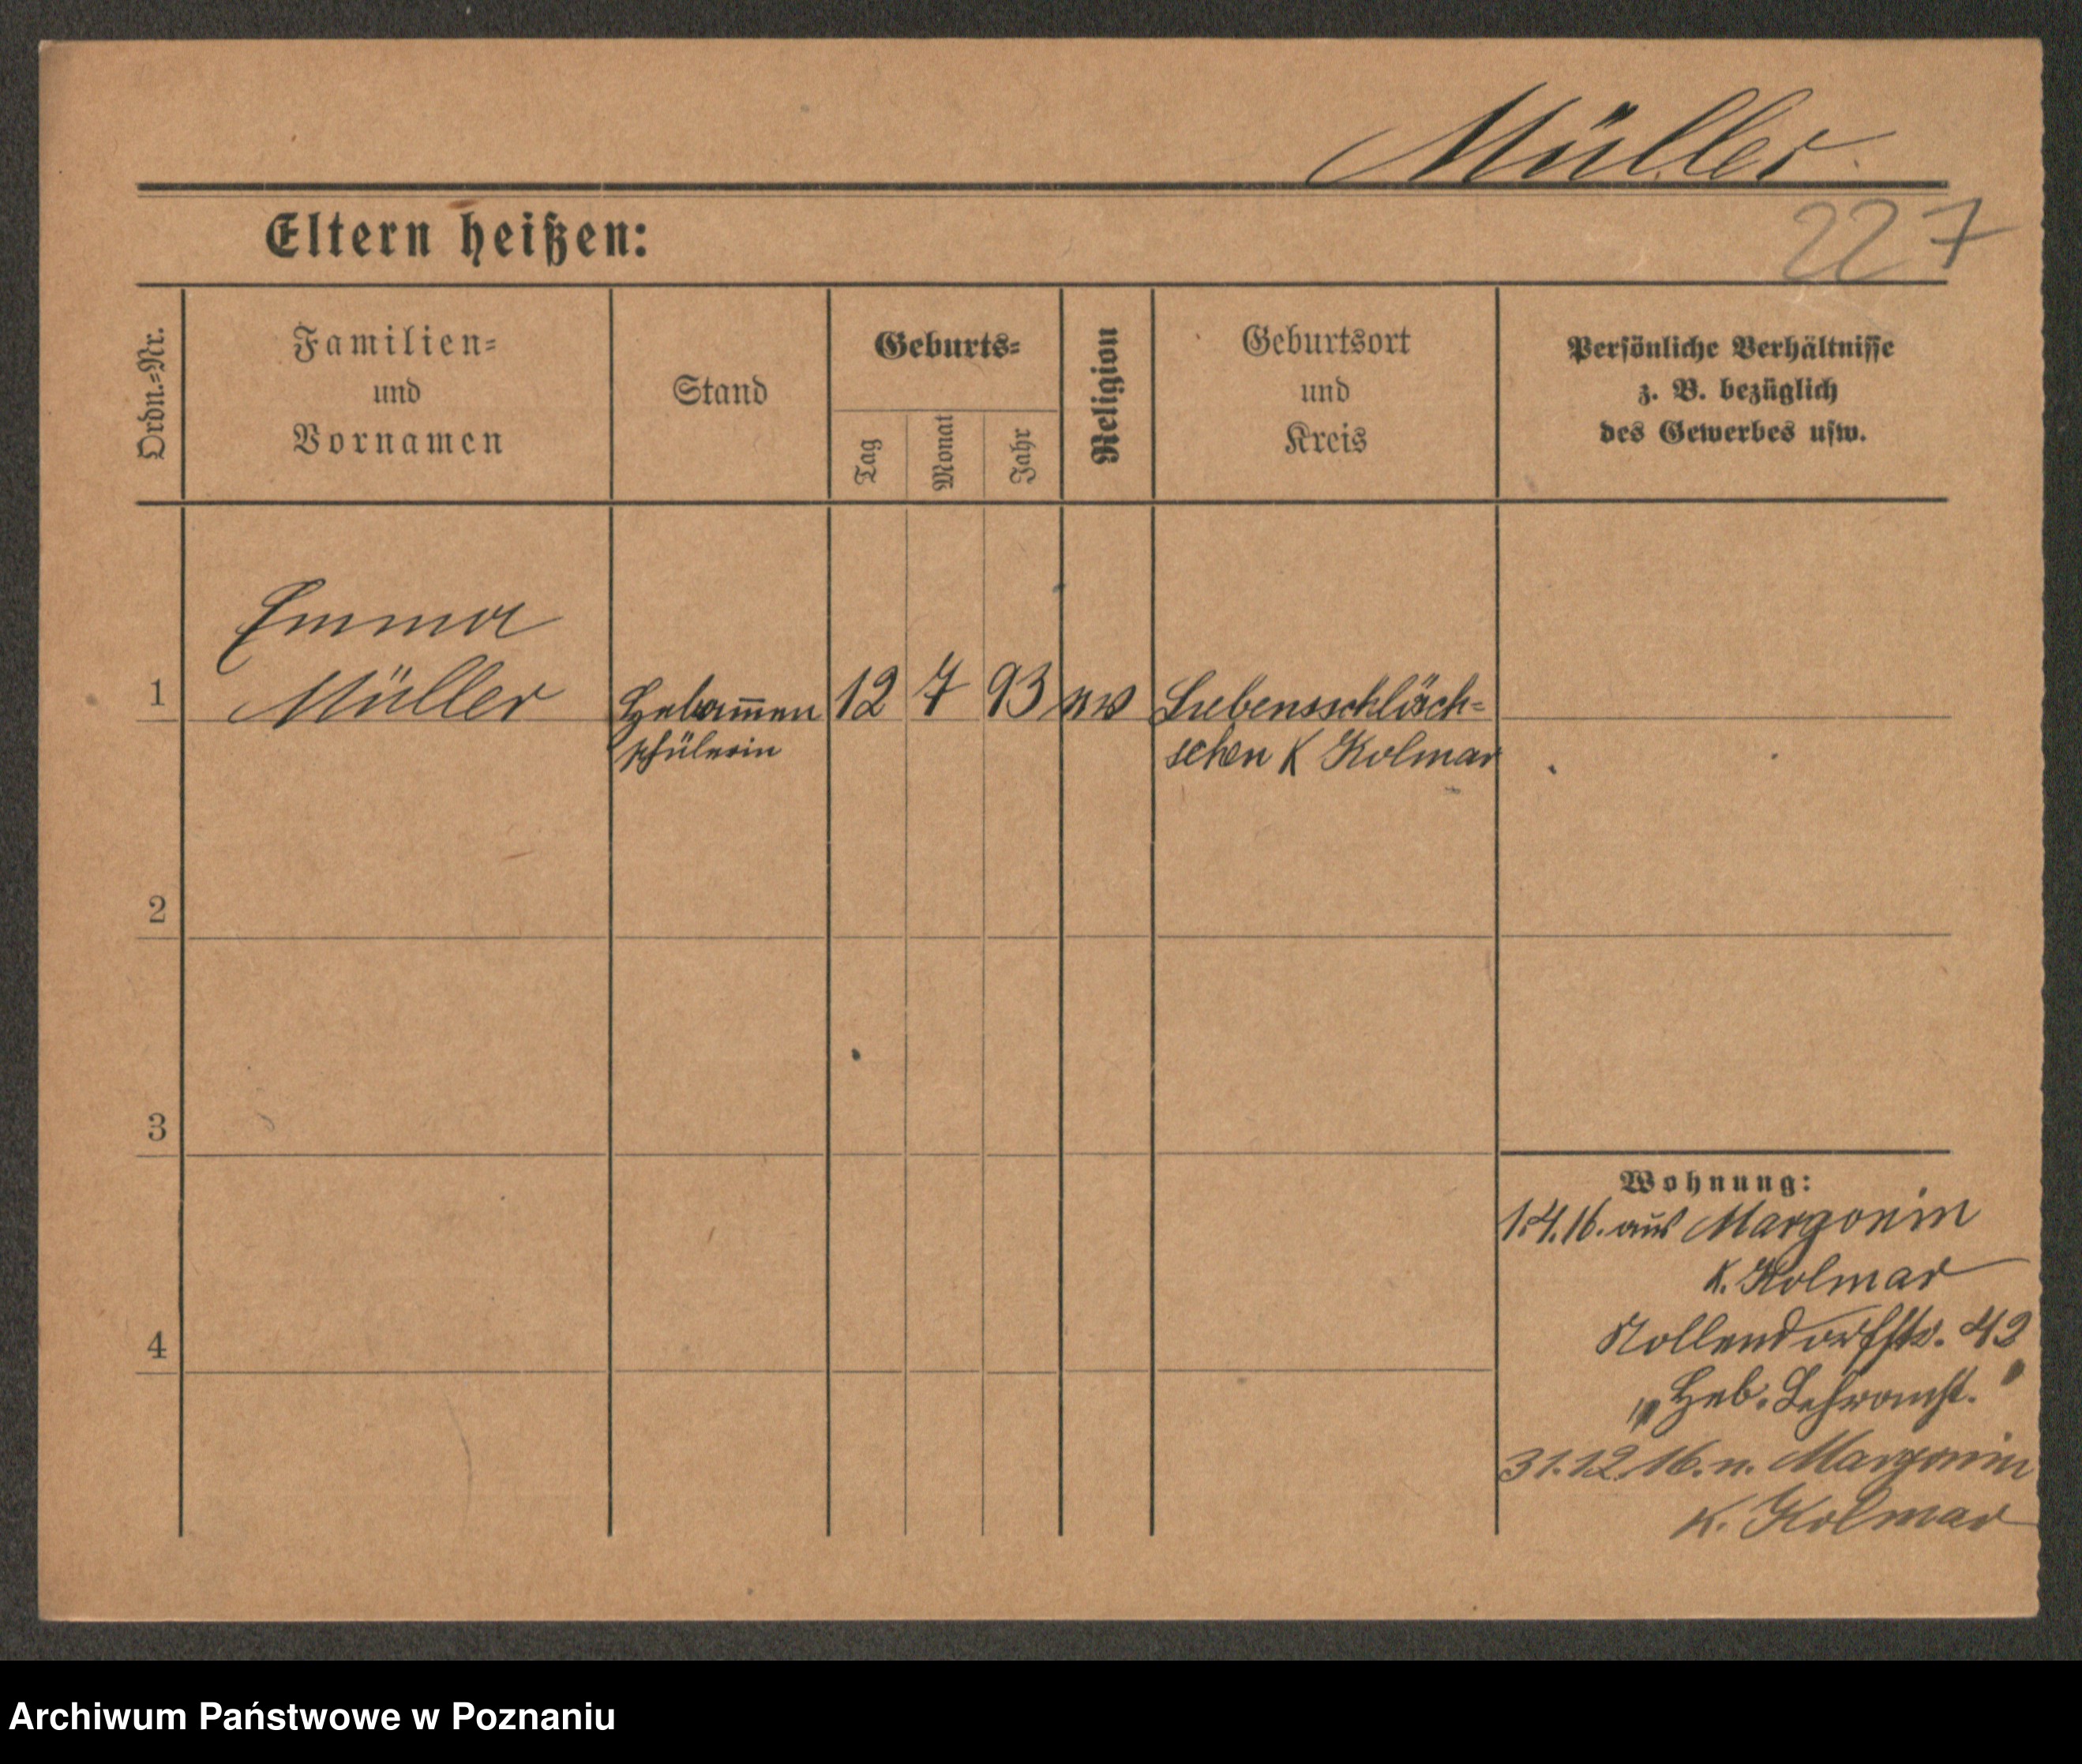 Müller
227
Eltern heißen:
Ordn.=Nr.
Familien=
und
Vornamen
Stand
Geburts=
Tag
Monat
Jahr
Religion
Geburtsort
und
Kreis
Persönliche Verhältnisse
z. B. bezüglich
des Gewerbes usw.
Emma
1 Müller Hebam̅en 12 7 93
schülerin schen K Kolmar
2
3
4
Wohnung:
1.4.16. aus Margonin
K. Kolmar
Nollendorfstr. 42
„Heb. Lehranst."
31.12.16. n. Margonin
K. Kolmar
Archiwum Państwowe w Poznaniu